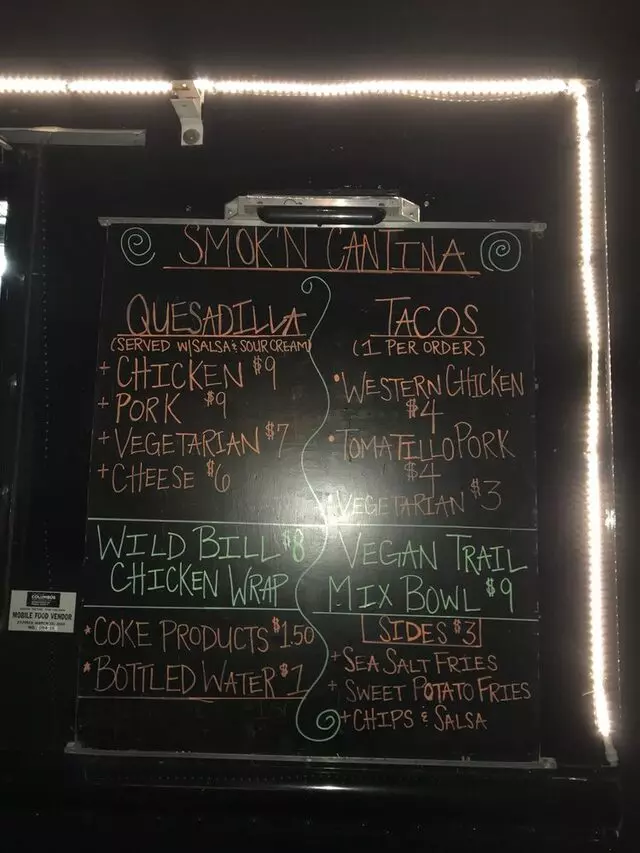 SMOK'N CANTINA
QUESADILLA
(SERVED W/SALSA & SOUR CREAM)
+ CHICKEN $9
+ PORK $9
+ VEGETARIAN $7
+ CHEESE $6
TACOS
(1 PER ORDER)
• WESTERN CHICKEN
$4
• TOMATILLO PORK
$4
VEGETARIAN $3
WILD BILL $8
CHICKEN WRAP
VEGAN TRAIL
MIX BOWL $9
* COKE PRODUCTS $1.50
* BOTTLED WATER $1
SIDES $3
+ SEA SALT FRIES
+ SWEET POTATO FRIES
+ CHIPS & SALSA
COLUMBUS
MOBILE FOOD VENDOR